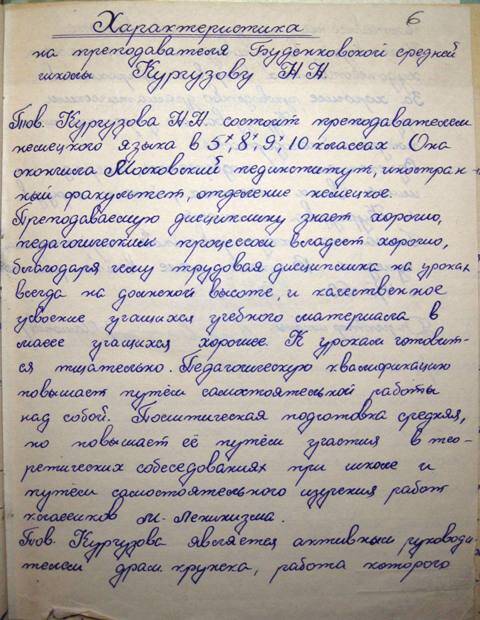 6
Характеристика
на преподавателя Будёнковской средней
школы Кургузову Н.Н.
Тов. Кургузова Н.Н. состоит преподавателем
немецкого языка в 5х, 8х, 9х, 10 классах Она
окончила Московский пединститут, иностран-
ный факультет, отделение немецкое.
Преподаваемую дисциплину знает хорошо,
педагогическим процессом владеет хорошо,
благодаря чему трудовая дисциплина на уроках
всегда на должной высоте, и качественное
усвоение учащихся учебного материала в
массе учащихся хорошее. К урокам готовит-
ся тщательно. Педагогическую квалификацию
повышает путём самостоятельной работы
над собой. Политическая подготовка средняя,
но повышает её путём участия в тео-
ретических собеседованиях при школе и
путём самостоятельного изучения работ
классиков М-Ленинизма.
Тов. Кургузова является активным руководи-
телем драм. кружка, работа которого